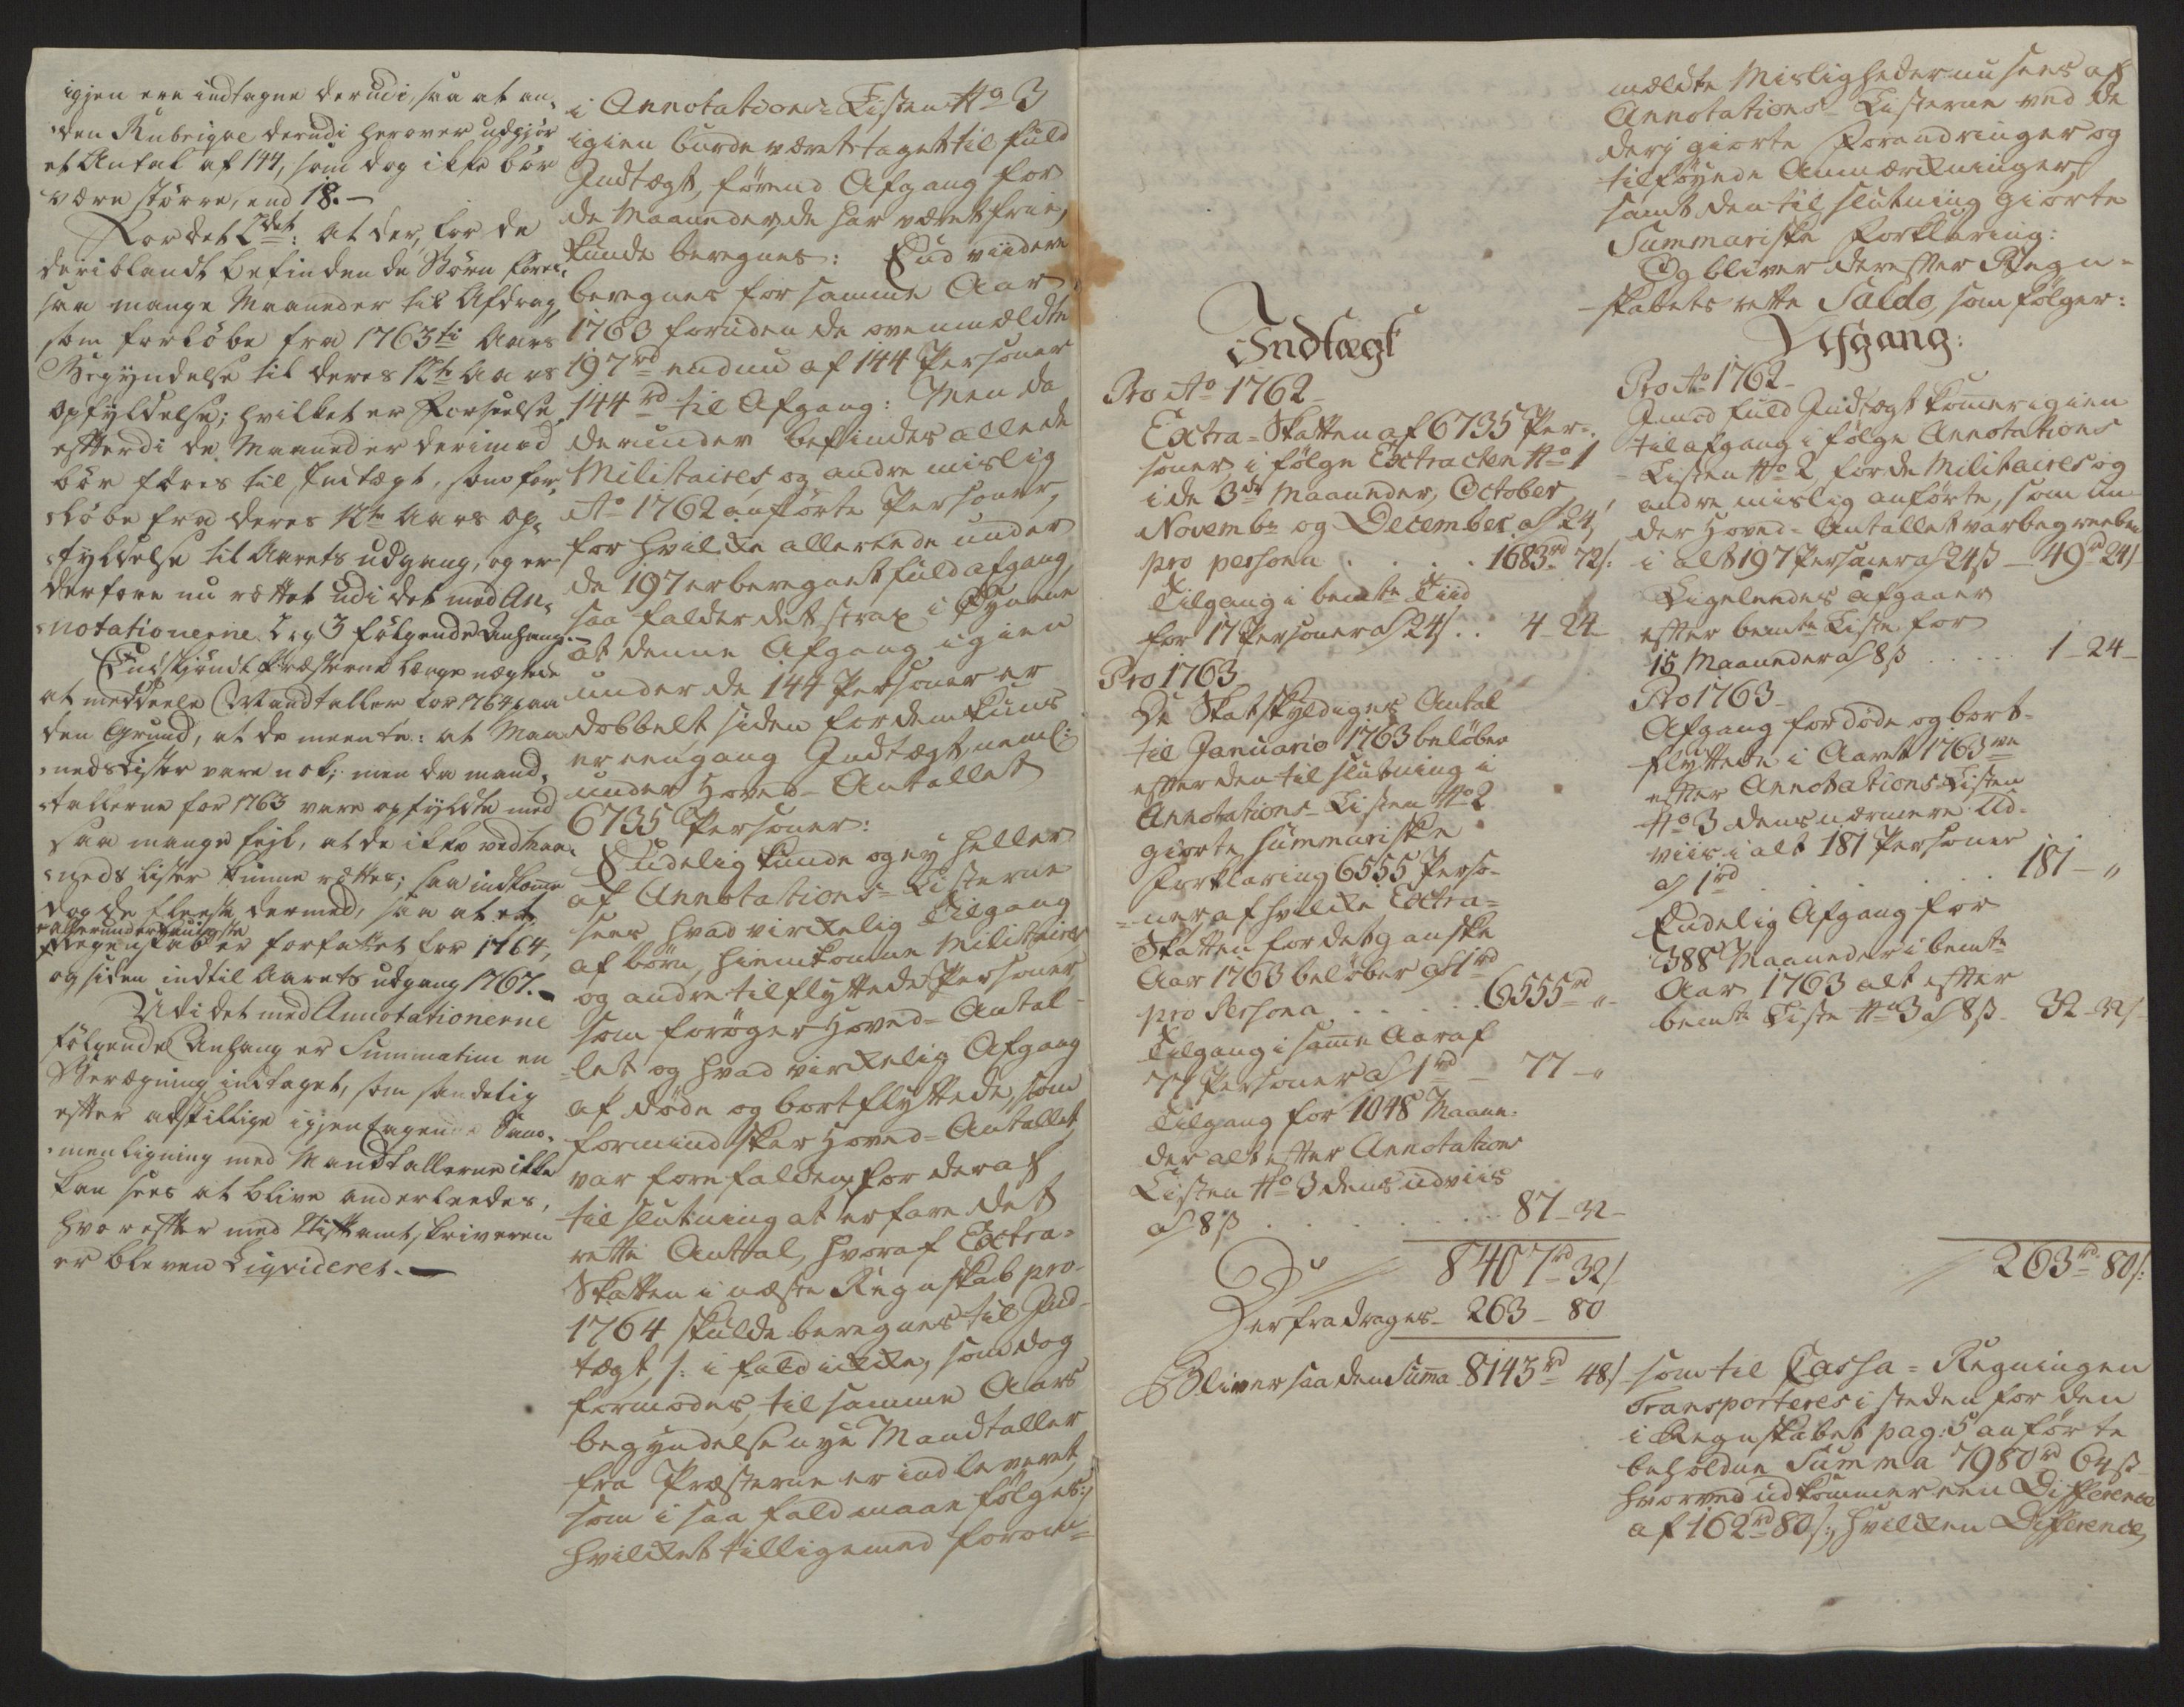 igjen ere indtagne derudi, saa at an-
den Rubriqve derudi herover udgjør
et Antal af 144, som dog ikke bør
være større, end 18.-
For det 2det: at der, for de
deriblandt befindende Børn føres
saa mange Maaneder til Afdrag,
som forløbe fra 1763ti Aars
Begyndelse til deres 12te Aars
opfyldelse; hvilket er Forseelse,
efterdi de Maaneder derimod
bør føres til Indtægt, som for-
løbe fra deres 12te Aars op-
fyldelse til Aarets udgang, og er
derfore nu rettet udi det med An-
notationerne L og 3 følgende Anhang.
Endskjøndt Præsterne længe nægtede
at meddeele Mandtaller for 1764 paa
den Grund, at de meente: at Maa-
neds Lister vare nok; men da mand-
tallerne for 1763 vare opfyldte med
saa mange fejl, at de ikke ved Maa-
neds Lister kunne rettes; saa indkomme
dog de fleeste dermed, saa at et
allerunderdanigste
Regenskab er forfattet for 1764,
og siden indtil Aarets udgang 1767.-
Udi det med Annotationerne
følgende Anhang er Summatim en
Beregning indtaget, som sandelig
efter adskillige igjentagende Sam-
menligning med Mandtallerne ikke
kan sees at blive anderleedes,
hvorefter med Stiftamtskriveren
er bleven Liqvideret.-
i Annotations-Listen No 3
igien burde været taget til fuld
Indtægt, førend Afgang for
de Maaneder, de har været frie,
kunde beregnes: End viidere
beregnes for samme Aar
1763 foruden de ovenmældte
197rd endnu af 144 Personer
144rd til Afgang: Men da
derunder befindes alle de
Militaires og andre mislig
Ao 1762 anførte Personer,
for hvilke allereede under
de 197 er beregnet fuld afgang,
saa falder det strax i Øynene
at denne Afgang igien
under de 144 Personer er
dobbelt, siden for dem kuns
er eengang Indtægt, neml:
under Hoved-Antallet
6735 Personer:
Endelig kunde og ey heller
af Annotations-Listerne
sees hvad virkelig Tilgang
af børn, hiemkomne Militaires
og andre tilflyttede Personer,
som forøger Hoved-Antal-
let og hvad virkelig Afgang
af døde og bortflyttede, som
formindsker Hoved-Antallet,
var forefalden, for deraf
til slutning at erfare det
rette Anttal, hvoraf Extra-
Skatten i næste Regnskab pro
1764 skulde beregnes til Ind-
tægt, /: i fald ikke, som dog
formodes, til samme Aars
begyndelse nye Mandtaller
fra Præsterne er indleveret,
som i saa fald maae følges:/
hvilket tilligemed forom-
Indtægt
Pro Ao 1762
Extra-Skatten af 6735 Per-
soner i følge Extracten No 1
i de 3de Maaneder, October,
Novembr og December a 24/
pro persona . . . . 1683rd 72/:
Tilgang i bemte Tiid
for 17 Personer a 24/ . . 4-24-
Pro 1763
De Skatskyldiges Antal
til Januario 1763 beløber
efter den til slutning i
Annotations-Listen No 2
giorte summariske
Forklaring 6555 Perso-
ner, af hvilke Extra-
Skatten for det ganske
Aar 1763 beløber a 1rd
pro Persona . . . . . 6555rd „-
Tilgang i samme Aar af
77 Personer a 1rd - 77-„
Tilgang for 1048 Maane-
der alt efter Annotations
Listen No 3 dens udviis
a 8ß . . . . . . 87-32-
8407rd 32/
Derfra drages - 263-80
Bliver saa den Suma 8143rd 48/
mældte Misligheder nu sees af
Annotations-Listerne ved de
derj giorte Forandringer og
tilføyede Anmærkninger,
samt den til slutning giorte
Summariske Forklaring:
Og bliver derefter Regn-
skabets rette Saldo, som følger:
Afgang:
Pro Ao 1762-
Imod fuld Indtægt kommer igien
til afgang i følge Annotations
Listen No 2 for de Militaires og
andre mislig anførte, som un-
der Hoved-Antallet var begreeben
i alt 197 Personer a 24ß - 49rd 24/
Ligeleedes afgaaer
efter bemte Liste for
15 Maaneder a 8ß . . . . . 1-24-
Pro 1763-
Afgang for døde og bort-
flyttede i Aaret 1763 -
efter Annotations Listen
No 3 dens nærmere Ud-
viis i alt 181 Personer
a 1rd . . . . . . . 181-„
Endelig Afgang for
388 Maaneder i bemte
Aar 1763 alt efter
bemte Liste No 3 a 8ß - 32-32/-
263rd 80/:
som til Cassa-Regningen
Transporteres i steden for den
i Regnskabet pag: 5 anførte
beholdne Summa 7980rd 64ß
hvorved udkommer een Difference
af 162rd 80/:, hvilken Difference,